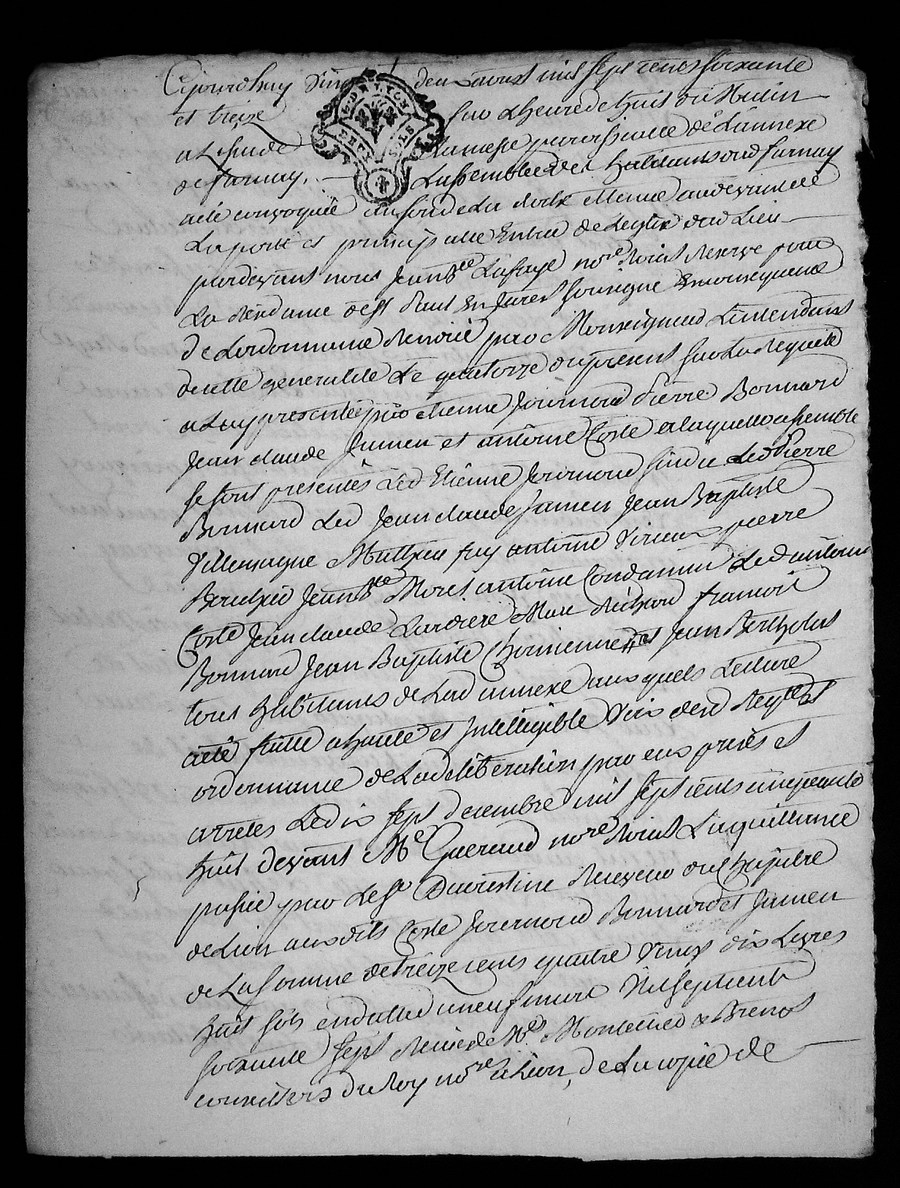 Cejourdhuy vingt deux aoust mil sept cens soixante
et treize sur Lheure de huit du Matin
a Lissue de La messe parroissialle de Lannexe
de farnay, Lassemblée des habitans dud farnay
GEN DE LYON
DEUX SOLS
aété convoquée au son de La cloche Menée audevant de
La porte et principalle Entrée de Leglize dud Lieu
pardevant nous Jean Bte Lafaye nore Roial Reservé pour
La Rezdance de St Paul En Jarest soussigné En consequence
de Lordonnance Renduë par Monseigneur Lintendant
de cette generalité Le quatorze du present sur La Requete
a Luy presentée par etienne Journoud Pierre Bonnard
Jean claude Jamen et antoine Coste a laquelle assemblée
se sont presentés Led Etienne Journoud sindic Led Pierre
Bonnard Led Jean claude Jamen Jean Baptiste
Villemagne Mathieu fuy antoine Virieux pierre
Jean Bte Morel antoine Condamin Led antoine
Coste Jean claude Lardiere Marc Richard francois
Bonnard Jean Baptiste et Jean Bertholus
tous habitans de Lad annexe aux quels Lecture
aété faitte a haute et Intelligible Voix desd Reqte et
ordonnance de La deliberation par eux prises et
arretes Le dix sept decembre mil sept cents cinquante
huit devant Me Gueraud nore Roial La quittance
passée par Le Sr Receveur du Chapitre
de Lion aux dits Coste Journoud Bonnard et Jamen
de La somme de treize cents quatre vingt dix Livres
huit sols en datte du neuf mars mil sept cents
soixante sept Reçue de Mes Montellied & Brenot
conseillers du Roy nores a Lion, de La copie de